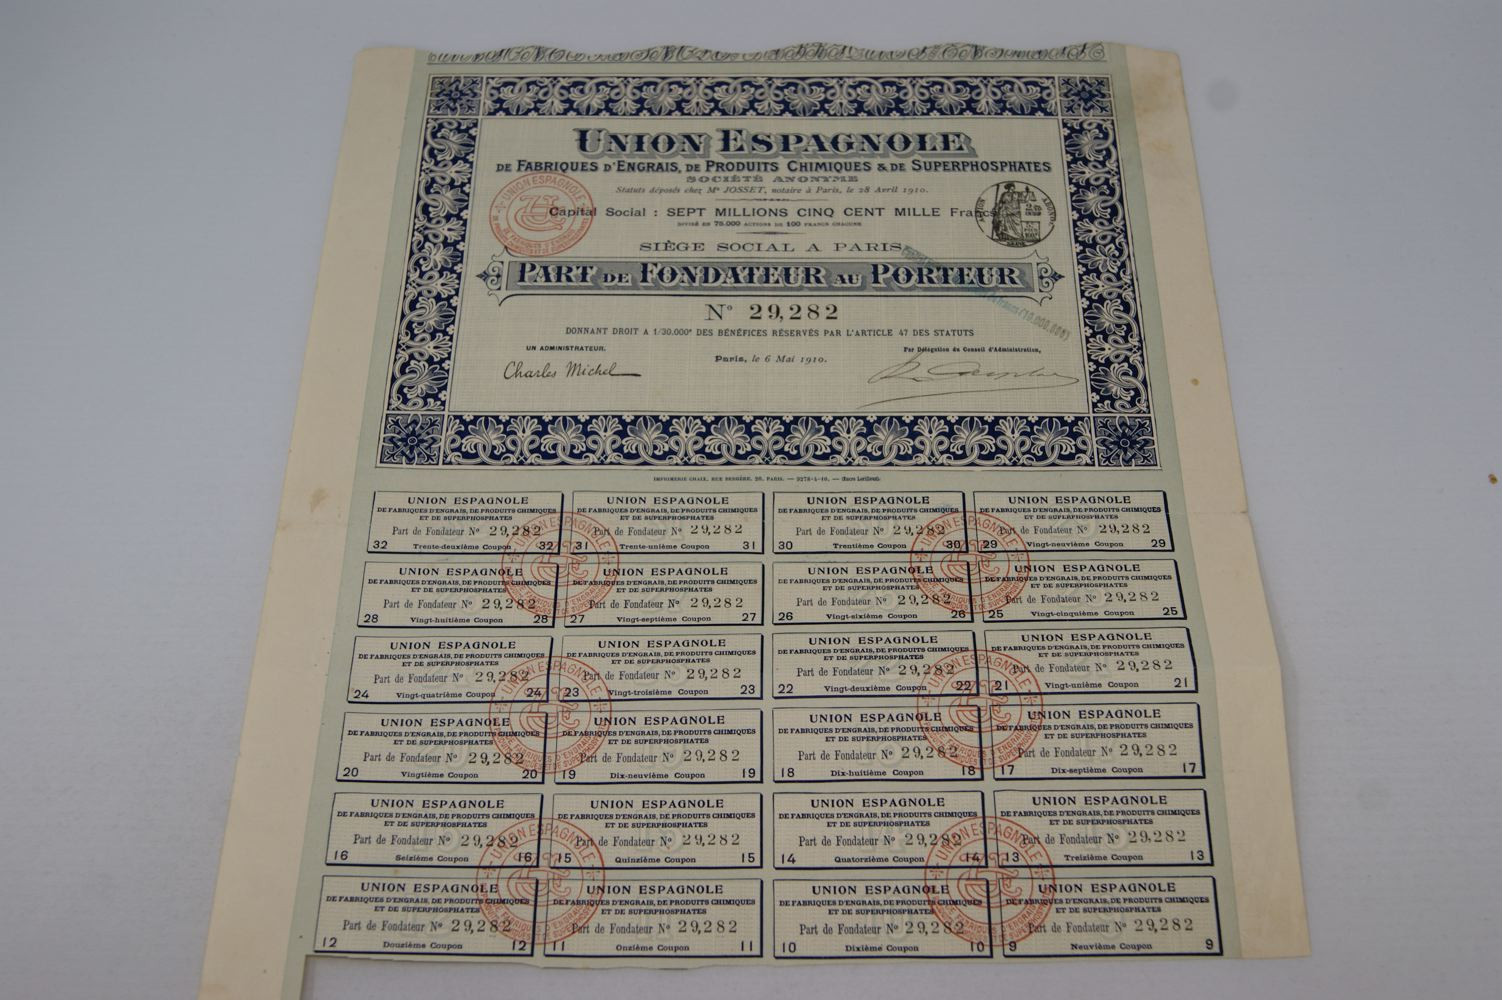 UNION ESPAGNOLE
DE FABRIQUES D'ENGRAIS, DE PRODUITS CHIMIQUES & DE SUPERPHOSPHATES
SOCIÉTÉ ANONYME
Statuts déposés chez Me JOSSET, notaire à Paris, le 28 Avril 1910.
Capital Social : SEPT MILLIONS CINQ CENT MILLE Francs
DIVISÉ EN 75.000 ACTIONS DE 100 FRANCS CHACUNE
SIÈGE SOCIAL A PARIS
PART DE FONDATEUR AU PORTEUR
No 29,282
DONNANT DROIT A 1/30.000e DES BÉNÉFICES RÉSERVÉS PAR L'ARTICLE 47 DES STATUTS
UN ADMINISTRATEUR.
Par Délégation du Conseil d'Administration,
Paris, le 6 Mai 1910.
Charles Michel
IMPRIMERIE CHAIX, RUE BERGÈRE, 20, PARIS. — 9278-4-10. — (Encre Lorilleux).
UNION ESPAGNOLE
DE FABRIQUES D'ENGRAIS, DE PRODUITS CHIMIQUES
ET DE SUPERPHOSPHATES
Part de Fondateur No 29,282
32 Trente-deuxième Coupon 32
UNION ESPAGNOLE
DE FABRIQUES D'ENGRAIS, DE PRODUITS CHIMIQUES
ET DE SUPERPHOSPHATES
Part de Fondateur No 29,282
31 Trente-unième Coupon 31
UNION ESPAGNOLE
DE FABRIQUES D'ENGRAIS, DE PRODUITS CHIMIQUES
ET DE SUPERPHOSPHATES
Part de Fondateur No 29,282
30 Trentième Coupon 30
UNION ESPAGNOLE
DE FABRIQUES D'ENGRAIS, DE PRODUITS CHIMIQUES
ET DE SUPERPHOSPHATES
Part de Fondateur No 29,282
29 Vingt-neuvième Coupon 29
UNION ESPAGNOLE
DE FABRIQUES D'ENGRAIS, DE PRODUITS CHIMIQUES
ET DE SUPERPHOSPHATES
Part de Fondateur No 29,282
28 Vingt-huitième Coupon 28
UNION ESPAGNOLE
DE FABRIQUES D'ENGRAIS, DE PRODUITS CHIMIQUES
ET DE SUPERPHOSPHATES
Part de Fondateur No 29,282
27 Vingt-septième Coupon 27
UNION ESPAGNOLE
DE FABRIQUES D'ENGRAIS, DE PRODUITS CHIMIQUES
ET DE SUPERPHOSPHATES
Part de Fondateur No 29,282
26 Vingt-sixième Coupon 26
UNION ESPAGNOLE
DE FABRIQUES D'ENGRAIS, DE PRODUITS CHIMIQUES
ET DE SUPERPHOSPHATES
Part de Fondateur No 29,282
25 Vingt-cinquième Coupon 25
UNION ESPAGNOLE
DE FABRIQUES D'ENGRAIS, DE PRODUITS CHIMIQUES
ET DE SUPERPHOSPHATES
Part de Fondateur No 29,282
24 Vingt-quatrième Coupon 24
UNION ESPAGNOLE
DE FABRIQUES D'ENGRAIS, DE PRODUITS CHIMIQUES
ET DE SUPERPHOSPHATES
Part de Fondateur No 29,282
23 Vingt-troisième Coupon 23
UNION ESPAGNOLE
DE FABRIQUES D'ENGRAIS, DE PRODUITS CHIMIQUES
ET DE SUPERPHOSPHATES
Part de Fondateur No 29,282
22 Vingt-deuxième Coupon 22
UNION ESPAGNOLE
DE FABRIQUES D'ENGRAIS, DE PRODUITS CHIMIQUES
ET DE SUPERPHOSPHATES
Part de Fondateur No 29,282
21 Vingt-unième Coupon 21
UNION ESPAGNOLE
DE FABRIQUES D'ENGRAIS, DE PRODUITS CHIMIQUES
ET DE SUPERPHOSPHATES
Part de Fondateur No 29,282
20 Vingtième Coupon 20
UNION ESPAGNOLE
DE FABRIQUES D'ENGRAIS, DE PRODUITS CHIMIQUES
ET DE SUPERPHOSPHATES
Part de Fondateur No 29,282
19 Dix-neuvième Coupon 19
UNION ESPAGNOLE
DE FABRIQUES D'ENGRAIS, DE PRODUITS CHIMIQUES
ET DE SUPERPHOSPHATES
Part de Fondateur No 29,282
18 Dix-huitième Coupon 18
UNION ESPAGNOLE
DE FABRIQUES D'ENGRAIS, DE PRODUITS CHIMIQUES
ET DE SUPERPHOSPHATES
Part de Fondateur No 29,282
17 Dix-septième Coupon 17
UNION ESPAGNOLE
DE FABRIQUES D'ENGRAIS, DE PRODUITS CHIMIQUES
ET DE SUPERPHOSPHATES
Part de Fondateur No 29,282
16 Seizième Coupon 16
UNION ESPAGNOLE
DE FABRIQUES D'ENGRAIS, DE PRODUITS CHIMIQUES
ET DE SUPERPHOSPHATES
Part de Fondateur No 29,282
15 Quinzième Coupon 15
UNION ESPAGNOLE
DE FABRIQUES D'ENGRAIS, DE PRODUITS CHIMIQUES
ET DE SUPERPHOSPHATES
Part de Fondateur No 29,282
14 Quatorzième Coupon 14
UNION ESPAGNOLE
DE FABRIQUES D'ENGRAIS, DE PRODUITS CHIMIQUES
ET DE SUPERPHOSPHATES
Part de Fondateur No 29,282
13 Treizième Coupon 13
UNION ESPAGNOLE
DE FABRIQUES D'ENGRAIS, DE PRODUITS CHIMIQUES
ET DE SUPERPHOSPHATES
Part de Fondateur No 29,282
12 Douzième Coupon 12
UNION ESPAGNOLE
DE FABRIQUES D'ENGRAIS, DE PRODUITS CHIMIQUES
ET DE SUPERPHOSPHATES
Part de Fondateur No 29,282
11 Onzième Coupon 11
UNION ESPAGNOLE
DE FABRIQUES D'ENGRAIS, DE PRODUITS CHIMIQUES
ET DE SUPERPHOSPHATES
Part de Fondateur No 29,282
10 Dixième Coupon 10
UNION ESPAGNOLE
DE FABRIQUES D'ENGRAIS, DE PRODUITS CHIMIQUES
ET DE SUPERPHOSPHATES
Part de Fondateur No 29,282
9 Neuvième Coupon 9